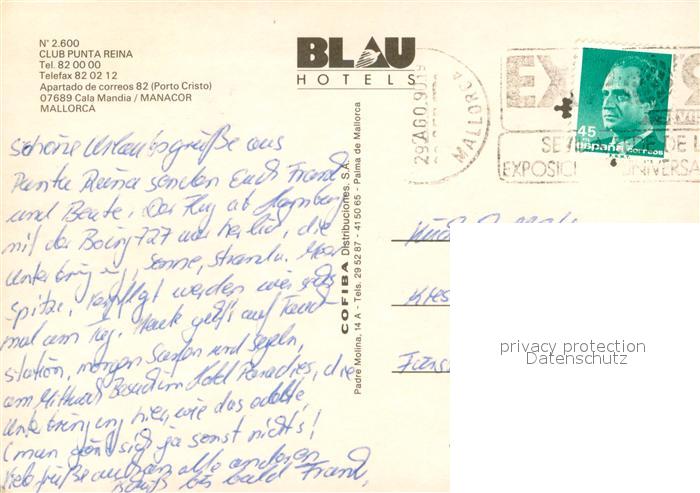 N° 2.600
CLUB PUNTA REINA
Tel. 82 00 00
Telefax 82 02 12
Apartado de correos 82 (Porto Cristo)
07689 Cala Mandia / MANACOR
MALLORCA
BLAU
HOTELS
29 AGO. 90
MALLORCA
45
España correos
EXPOSICI UNIVERSA
COFIBA Distribuciones, S.A.
Padre Molina, 14 A - Tels. 29 52 87 - 41 50 65 - Palma de Mallorca
schöne Urlaubsgrüße aus
Punta Reina senden Euch Frank
und Beate. Der Flug ab Hamburg
mit der Boing 727 war herrlich, die
Unterbringung, Sonne, Strand u. Meer
spitze, verpflegt werden wir sechs
mal am Tag. Heute geht's auf
station, morgen Surfen und segeln,
am Mittwoch Hotel Paradies, die
Unterbringung hier, wie das
(man gönnt sich ja sonst nichts!
liebe Grüße auch an alle anderen
bis bald Frank,
privacy protection
Datenschutz